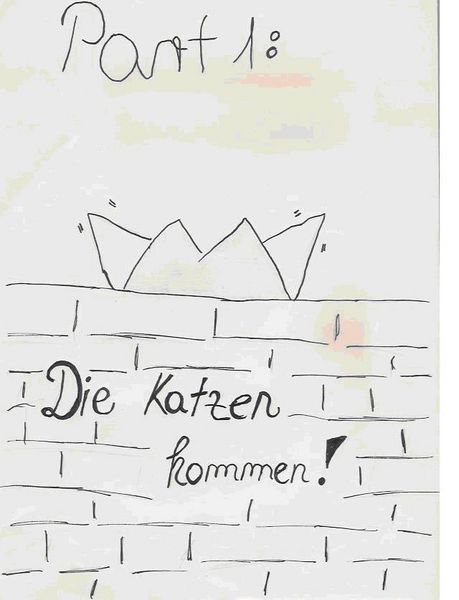 Part 1:
Die Katzen
kommen!